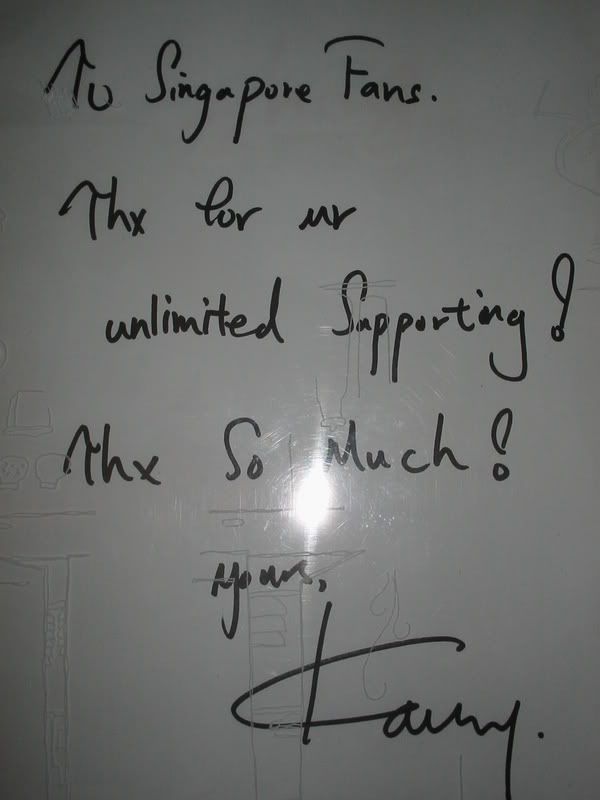 To Singapore Fans.
Thx for ur
unlimited Supporting!
Thx So Much!
yours,